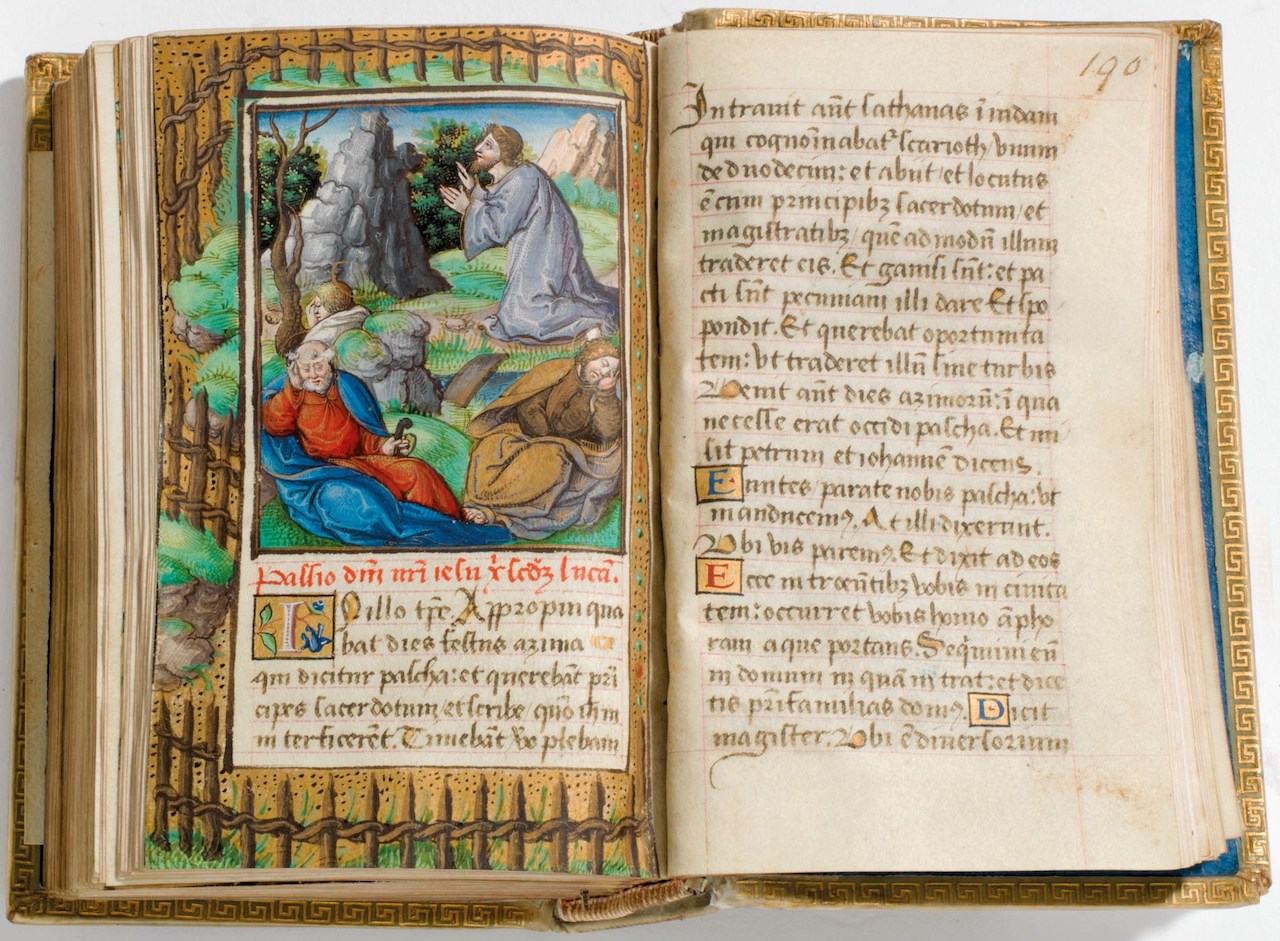 Passio dñi nr̃i iesu x̃ scd̃z lucā.
In illo tp̃e. Appropinqua
bat dies festus azima
qui dicitur pascha: et querebāt pñ
cipes sacerdotum/et scribe/quō ihm̄
interficerēt. Timebāt ṽo plebem
190
Intravit aūt sathanas ĩ iudam
qui cognoĩnabatᷣ scarioth/vnum
de duodecim: et abiit/et locutus
ē cum principibꝫ sacerdotum/et
magistratibꝫ/quē ad modū illum
traderet eis. Et gauisi sūt: et pa
cti sūt pecuniam illi dare Et spo
pondit. Et querebat oportunita
tem: vt traderet illū sine turbis
Venit aūt dies azimorū: ĩ qua
necesse erat occidi pascha. Et mi
sit petrum et iohannē dicens.
Euntes/parate nobis pascha: vt
manducemꝰ. At illi dixerunt.
Vbi vis paremꝰ. Et dixit ad eos
Ecce introeūtibꝫ vobis in ciuita
tem: occurret vobis homo āpho
ram aque portans. Seq̃mini eū
in domum in quā intrat: et dice
tis pr̃ifamilias domꝰ. Dicit
magister. Vbi ē diuersorium